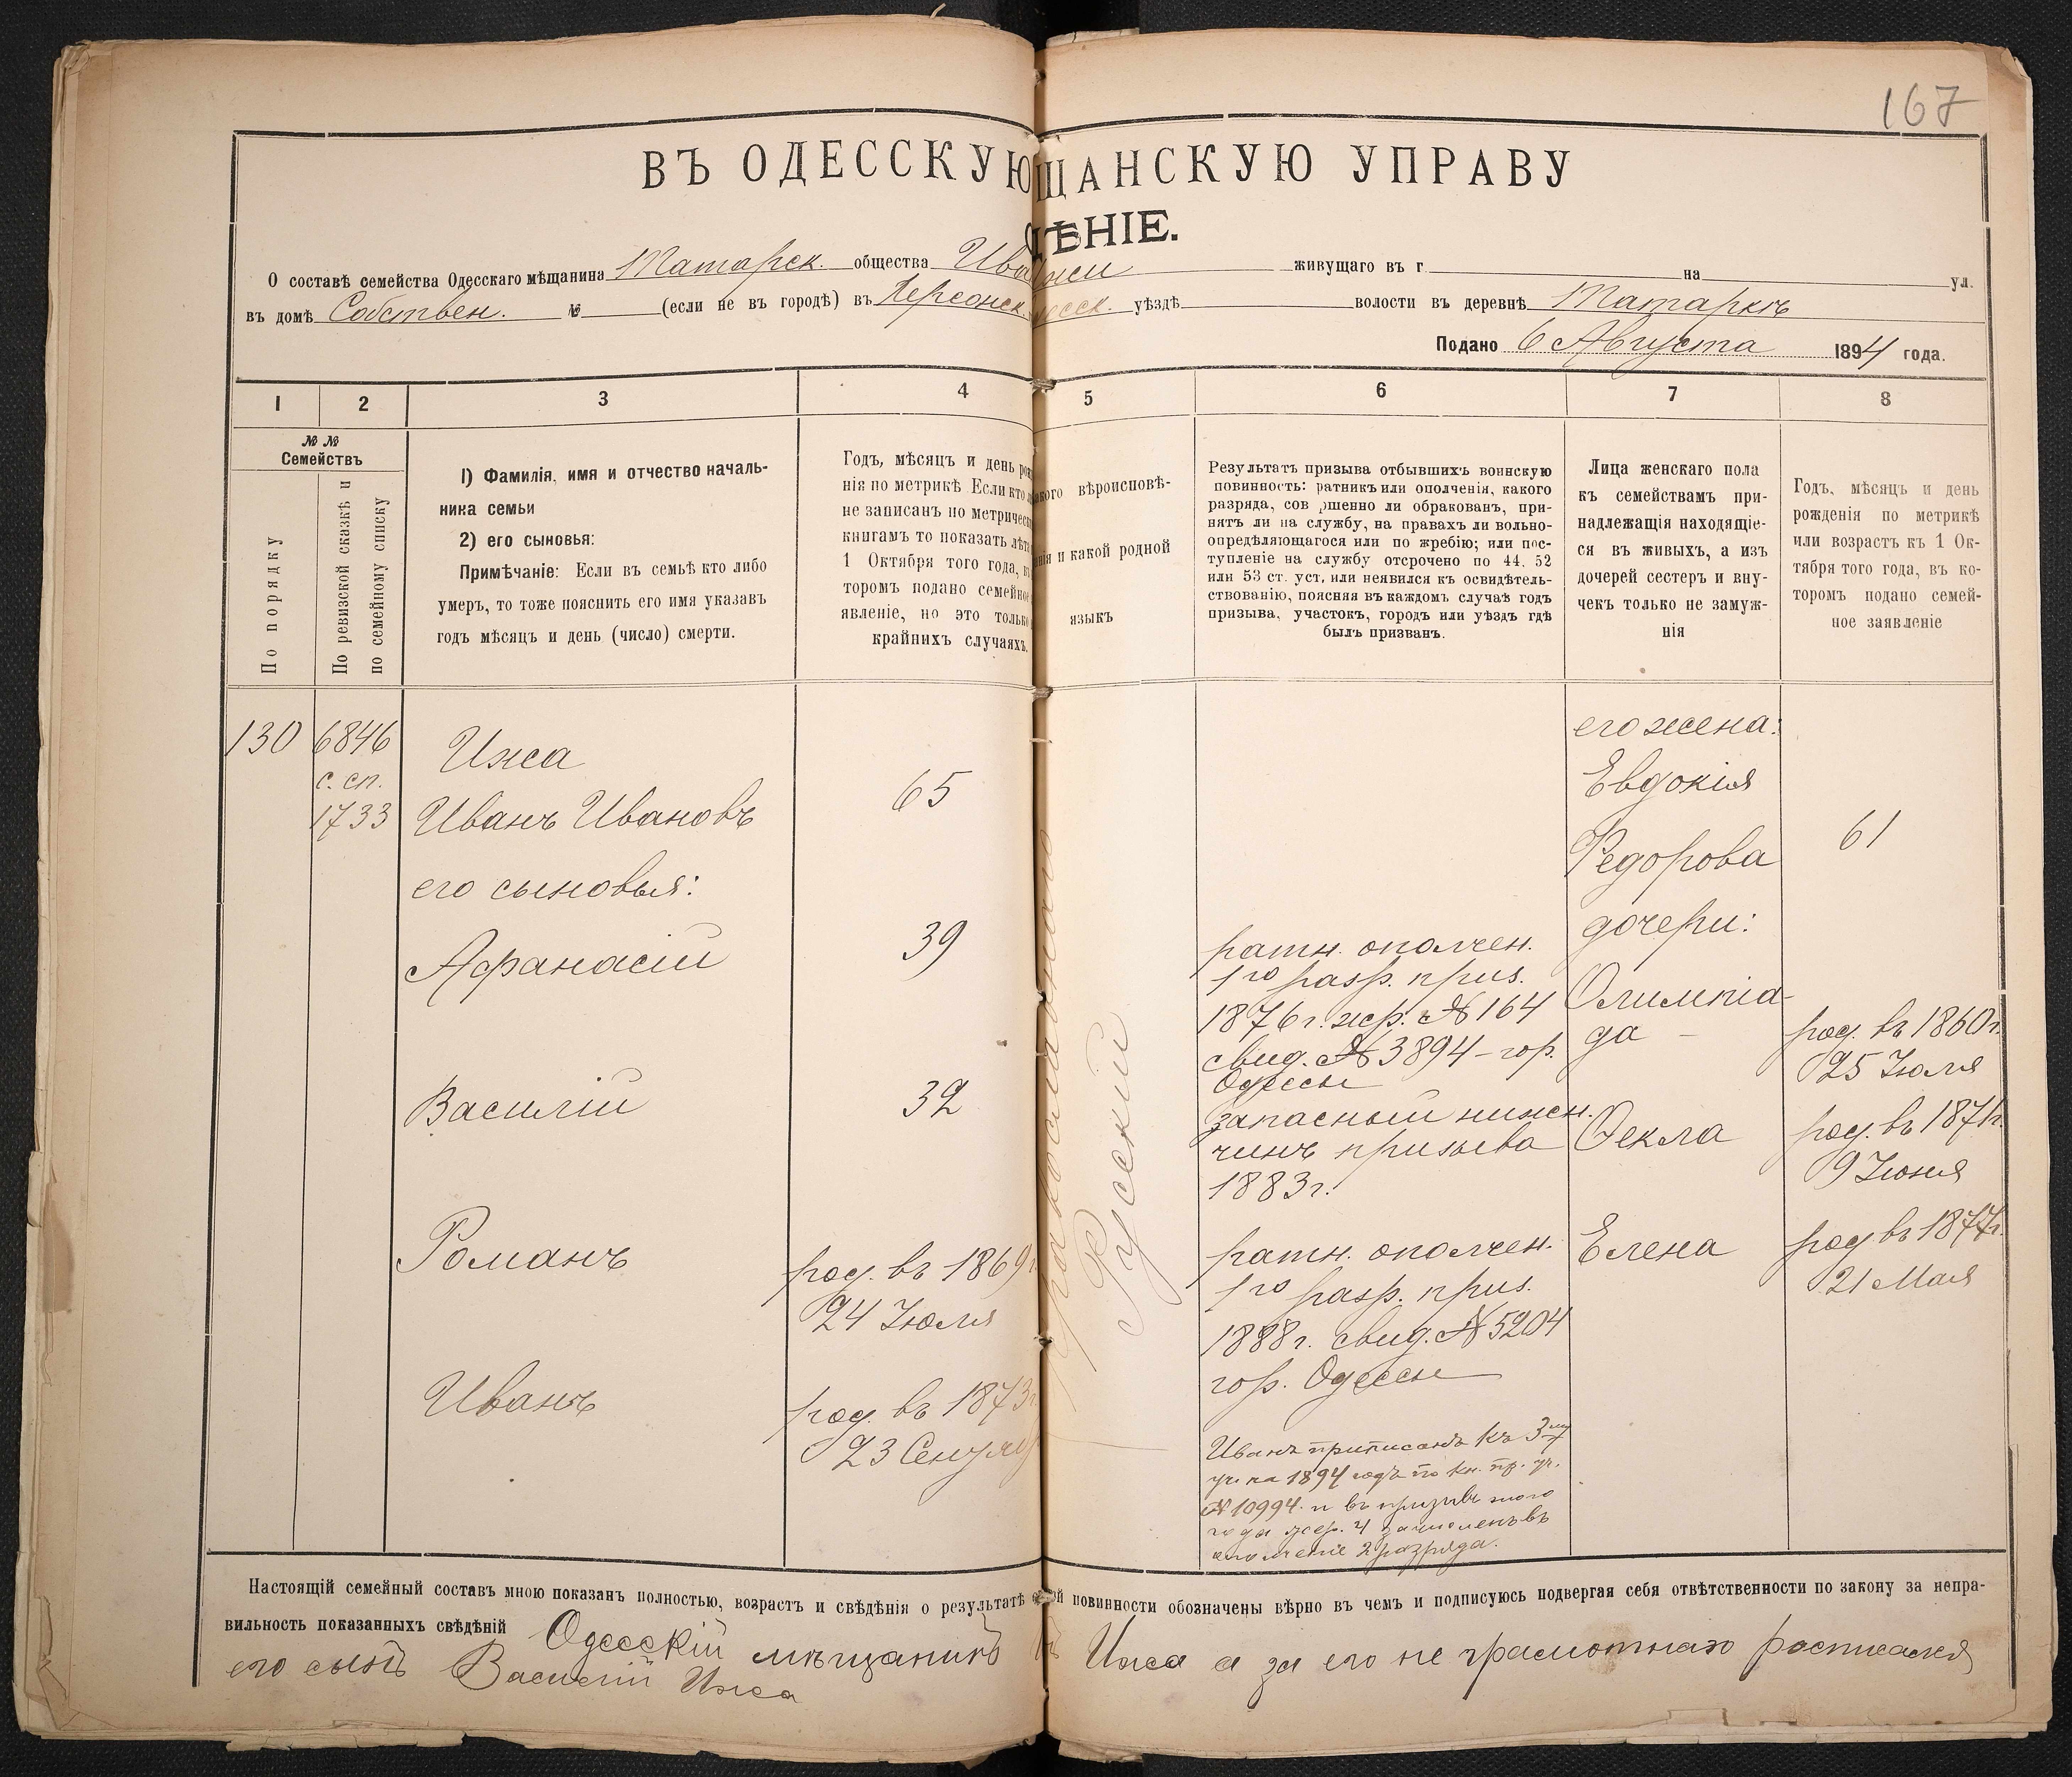 167
ВЪ ОДЕССКУЮ ЩАНСКУЮ УПРАВУ
ѢНІЕ.
О составѣ семейства Одесскаго мѣщанина Татарск. общества Ива живущаго въ г. на ул.
въ домѣ Собствен. № (если не въ городѣ) въ Херсонск. уѣздѣ волости въ деревнѣ Татаркѣ
Подано 6 Августа 1894 года.
1 2 3 4 5 6 7 8
№ № Семействъ
По порядку
По ревизской сказкѣ и
по семейному списку
1) Фамилія, имя и отчество началь-
ника семьи
2) его сыновья:
Примѣчаніе: Если въ семьѣ кто либо
умеръ, то тоже пояснить его имя указавъ
годъ мѣсяцъ и день (число) смерти.
Годъ, мѣсяцъ и день рож
нія по метрикѣ Если кто
не записанъ по метричес
книгамъ то показать лѣта
1 Октября того года, въ
торомъ подано семейное
явленіе, но это только
крайнихъ случаяхъ.
кого вѣроисповѣ-
нія и какой родной
языкъ
Результатъ призыва отбывшихъ воинскую
повинность: ратникъ или ополченія, какого
разряда, сов ршенно ли обракованъ, при-
нятъ ли на службу, на правахъ ли вольно-
опредѣляющагося или по жребію; или пос-
тупленіе на службу отсрочено по 44. 52
или 53 ст. уст. или неявился къ освидѣтель-
ствованію, поясняя въ каждомъ случаѣ годъ
призыва, участокъ, городъ или уѣздъ гдѣ
былъ призванъ.
Лица женскаго пола
къ семействамъ при-
надлежащія находящіе-
ся въ живыхъ, а изъ
дочерей сестеръ и вну-
чекъ только не замуж-
нія
Годъ, мѣсяцъ и день
рожденія по метрикѣ
или возрастъ къ 1 Ок-
тября того года, въ ко-
торомъ подано семей-
ное заявленіе
130
6846
с. сп.
1733
Ижа
Иванъ Ивановъ
65
его сыновья:
Афанасій
39
Василій
32
Романъ
род. въ 1869
24 Іюля
Иванъ
род. въ 1873г
23 Сен
Православнаго
Русскій
ратн. ополчен.
1го разр. приз.
1876г. жр. № 164
свид. № 3894 - гор.
Одессы
запасный нижн.
чинъ призыва
1883г.
ратн. ополчен.
1го разр. приз.
1888г. свид. № 5204
гор. Одессы
Иванъ приписанъ къ 3му
уч. на 1894 годъ по кн. пр. уч.
№ 10994. и въ призывъ того
года жер. 4 зачисленъ въ
ополченіе 2 разряда.
его жена:
Евдокія
Федорова
61
дочери:
Олимпіа-
да
род. въ 1860г.
25 Іюля
Фекла
род. въ 1871г.
9 Іюня
Елена
род въ 1877г.
21 Мая
Настоящій семейный составъ мною показанъ полностью, возрастъ и свѣдѣнія о результатѣ ой повинности обозначены вѣрно въ чемъ и подписуюсь подвергая себя отвѣтственности по закону за непра-
вильность показанныхъ свѣдѣній Одесскій мѣщанинъ Ижа а за его не грамотнаго росписался
его сынъ Василій Ижа